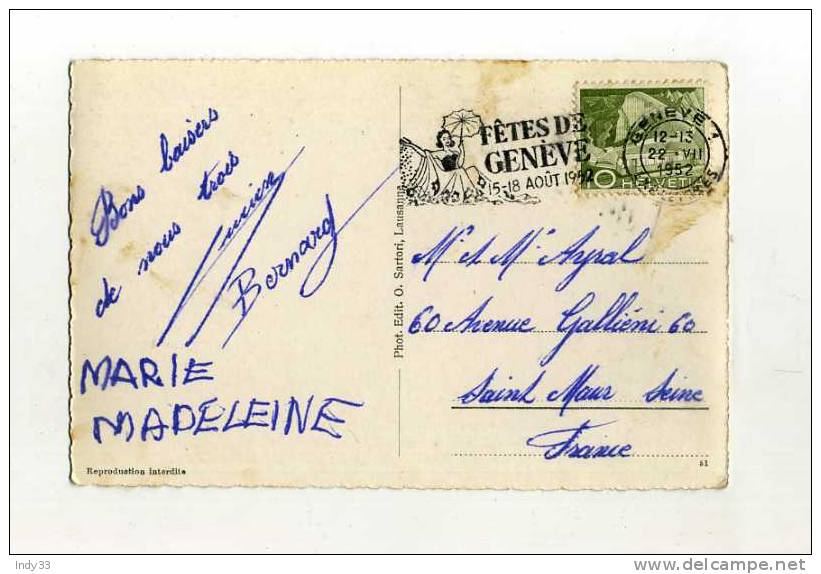 Bons baisers
de nous trois
Lucien
Bernard
MARIE
MADELEINE
Reproduction interdite
Phot. Edit. O. Sartori, Lausanne
FÊTES DE
GENÈVE
15-18 AOÛT 1952
GENÈVE 1
12-13
22 VII
1952
HELVETIA
Mr et Me Ayral
60 Avenue Galliéni 60
Saint Maur Seine
France
51
Indy33
delcampe.net